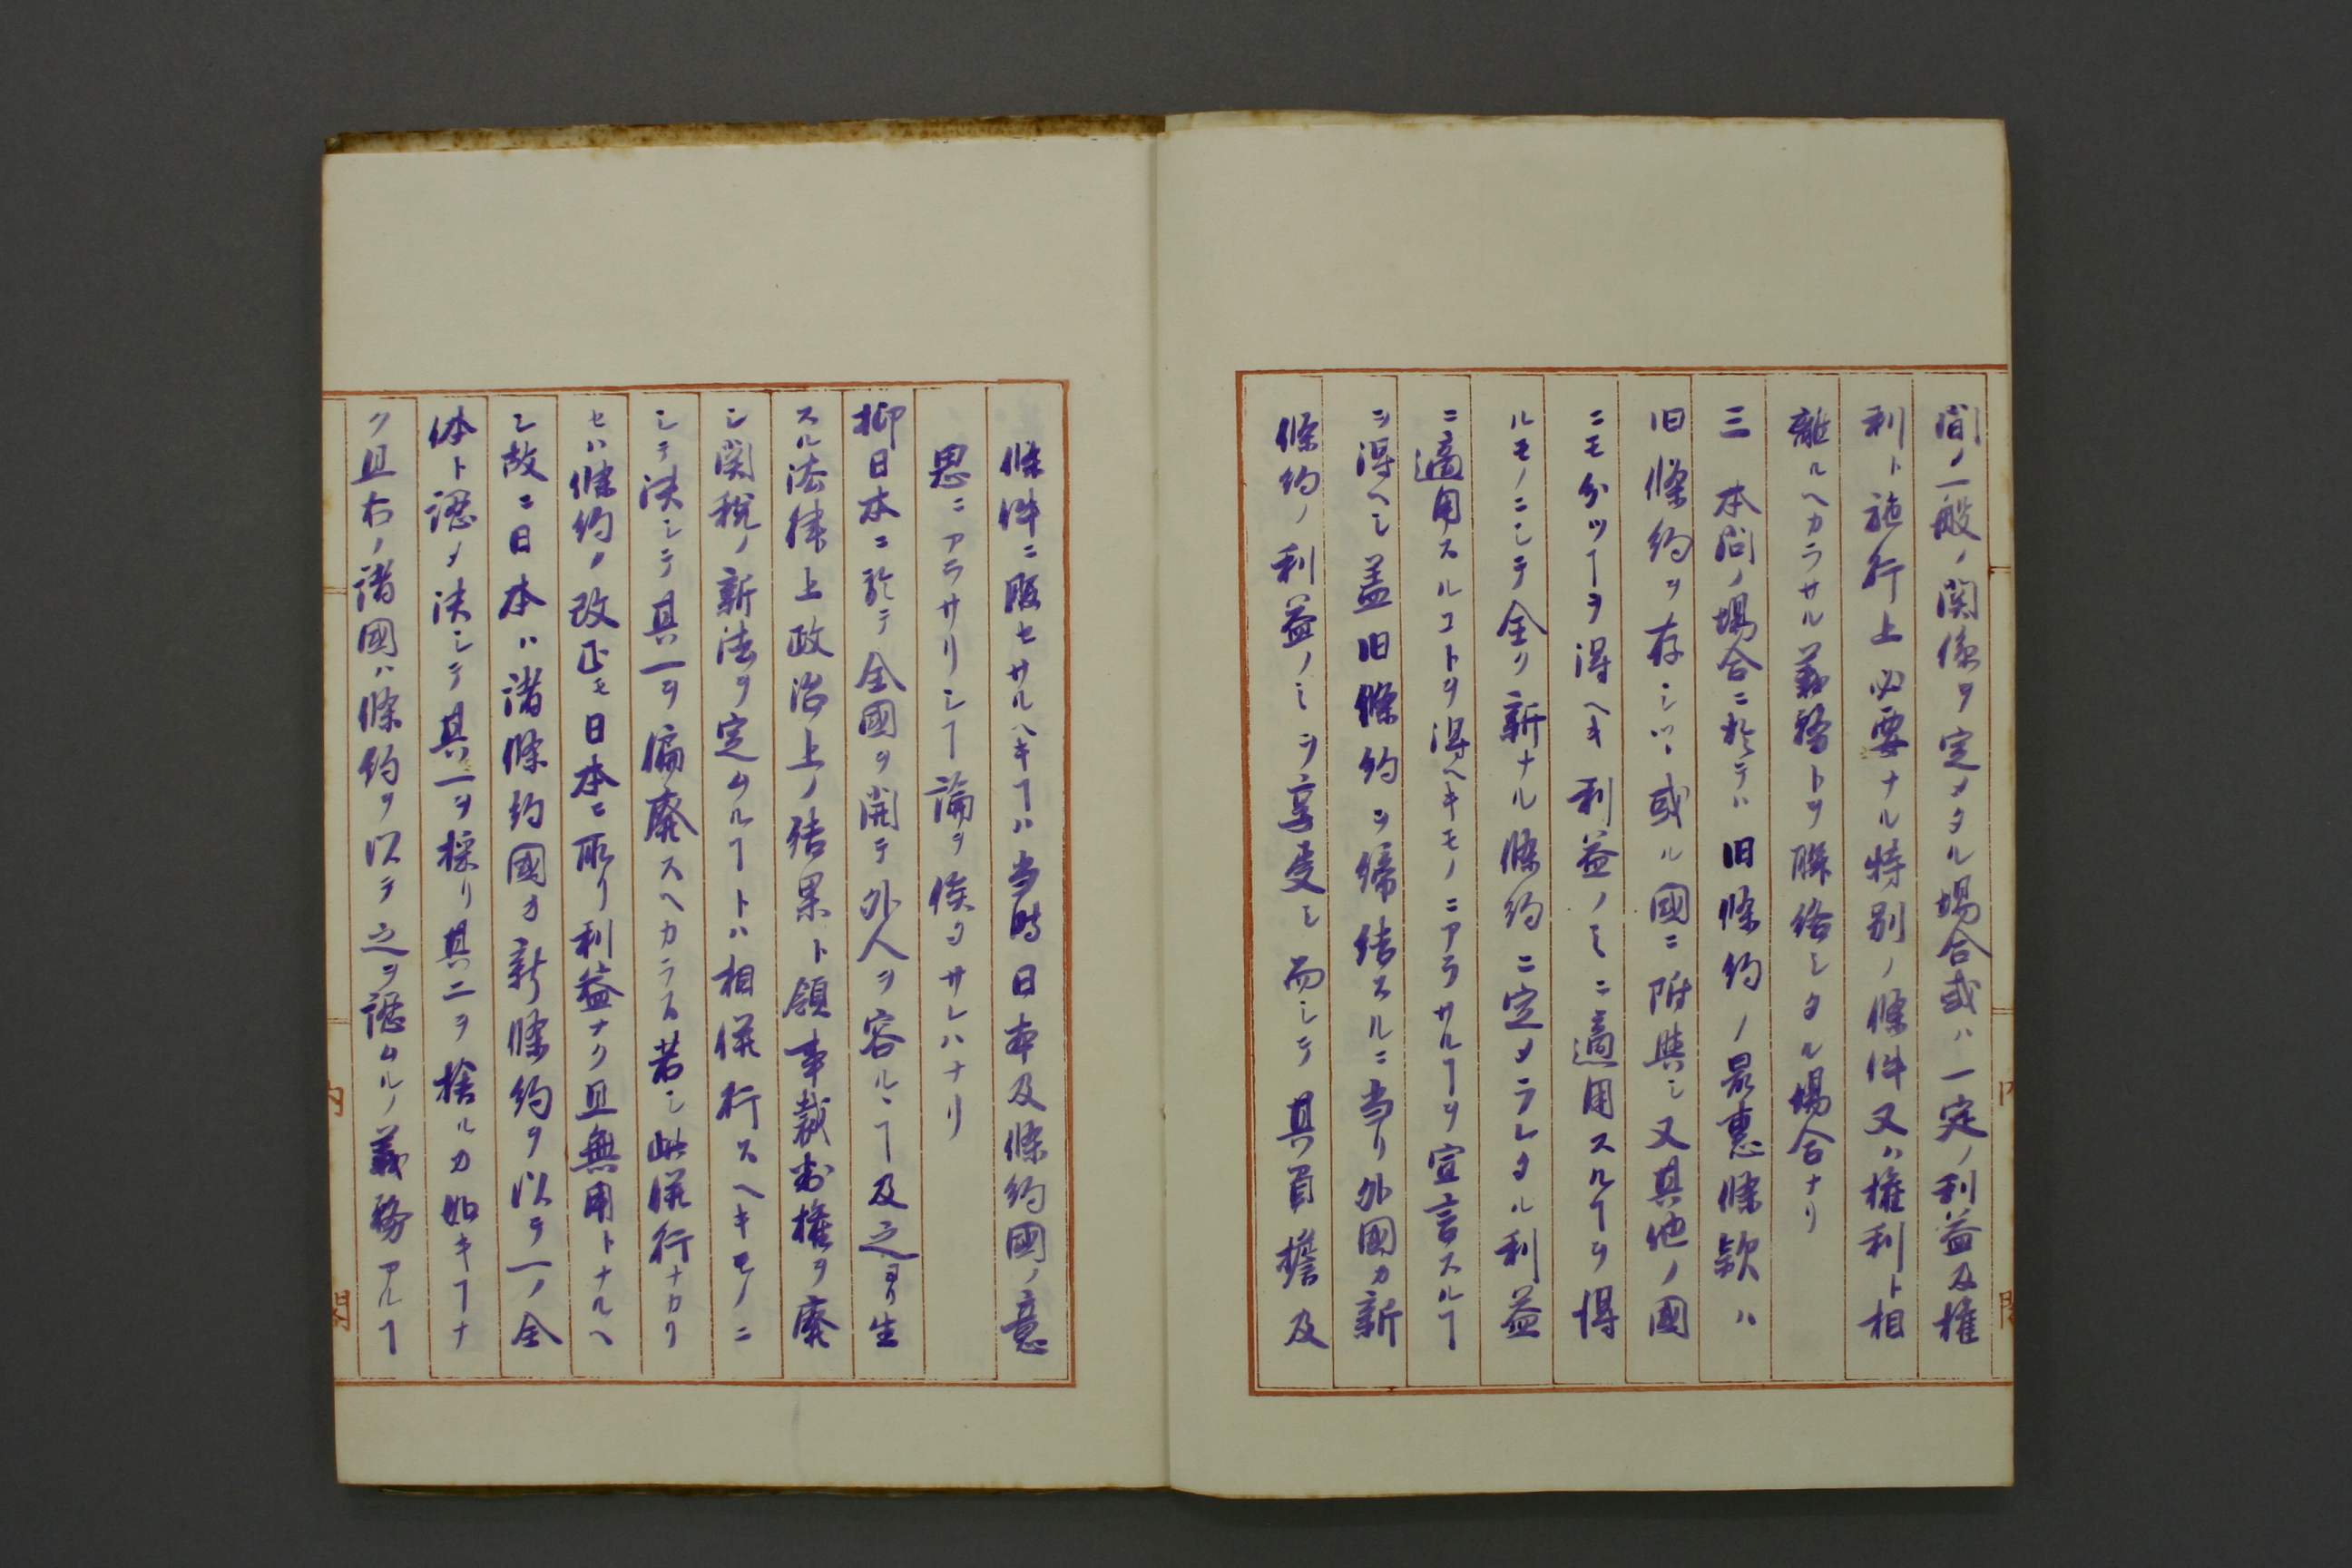 間ノ一般ノ関係ヲ定メタル場合或ハ一定ノ利益及権
利ト施行上必要ナル特別ノ條件又ハ権利ト相
離ルヘカラサル義務トヲ聯絡シタル場合ナリ
三 本問ノ場合ニ於テハ旧條約ノ最惠條款ハ
旧條約ヲ存シツヽ或ル國ニ附與シ又其他ノ國
ニモ分ツヿヲ得ヘキ利益ノミニ適用スルヿヲ得
ルモノニシテ全ク新ナル條約ニ定メラレタル利益
ニ適用スルコトヲ得ヘキモノニアラサルヿヲ宣言スルヿ
ヲ得ヘシ盖旧條約ヲ締結スルニ当リ外國カ新
條約ノ利益ノミヲ享受シ而シテ其負擔及
條件ニ服セサルヘキヿハ当時日本及條約國ノ意
思ニアラサリシヿ論ヲ俟タサレハナリ
抑日本ニ於テ全國ヲ開テ外人ヲ容ルヽヿ及之ヨリ生
スル法律上政治上ノ結果ト領事裁判権ヲ廃
シ関税ノ新法ヲ定ムルヿトハ相併行スヘキモノニ
シテ決シテ其一ヲ偏廃スヘカラス若シ此併行ナカリ
セハ條約ノ改正モ日本ニ取リ利益ナク且無用トナルヘ
シ故ニ日本ハ諸條約國カ新條約ヲ以テ一ノ全
体ト認メ決シテ其一ヲ採リ其二ヲ捨ルカ如キヿナ
ク且右ノ諸國ハ條約ヲ以テ之ヲ認ムルノ義務アルヿ
内閣
内閣